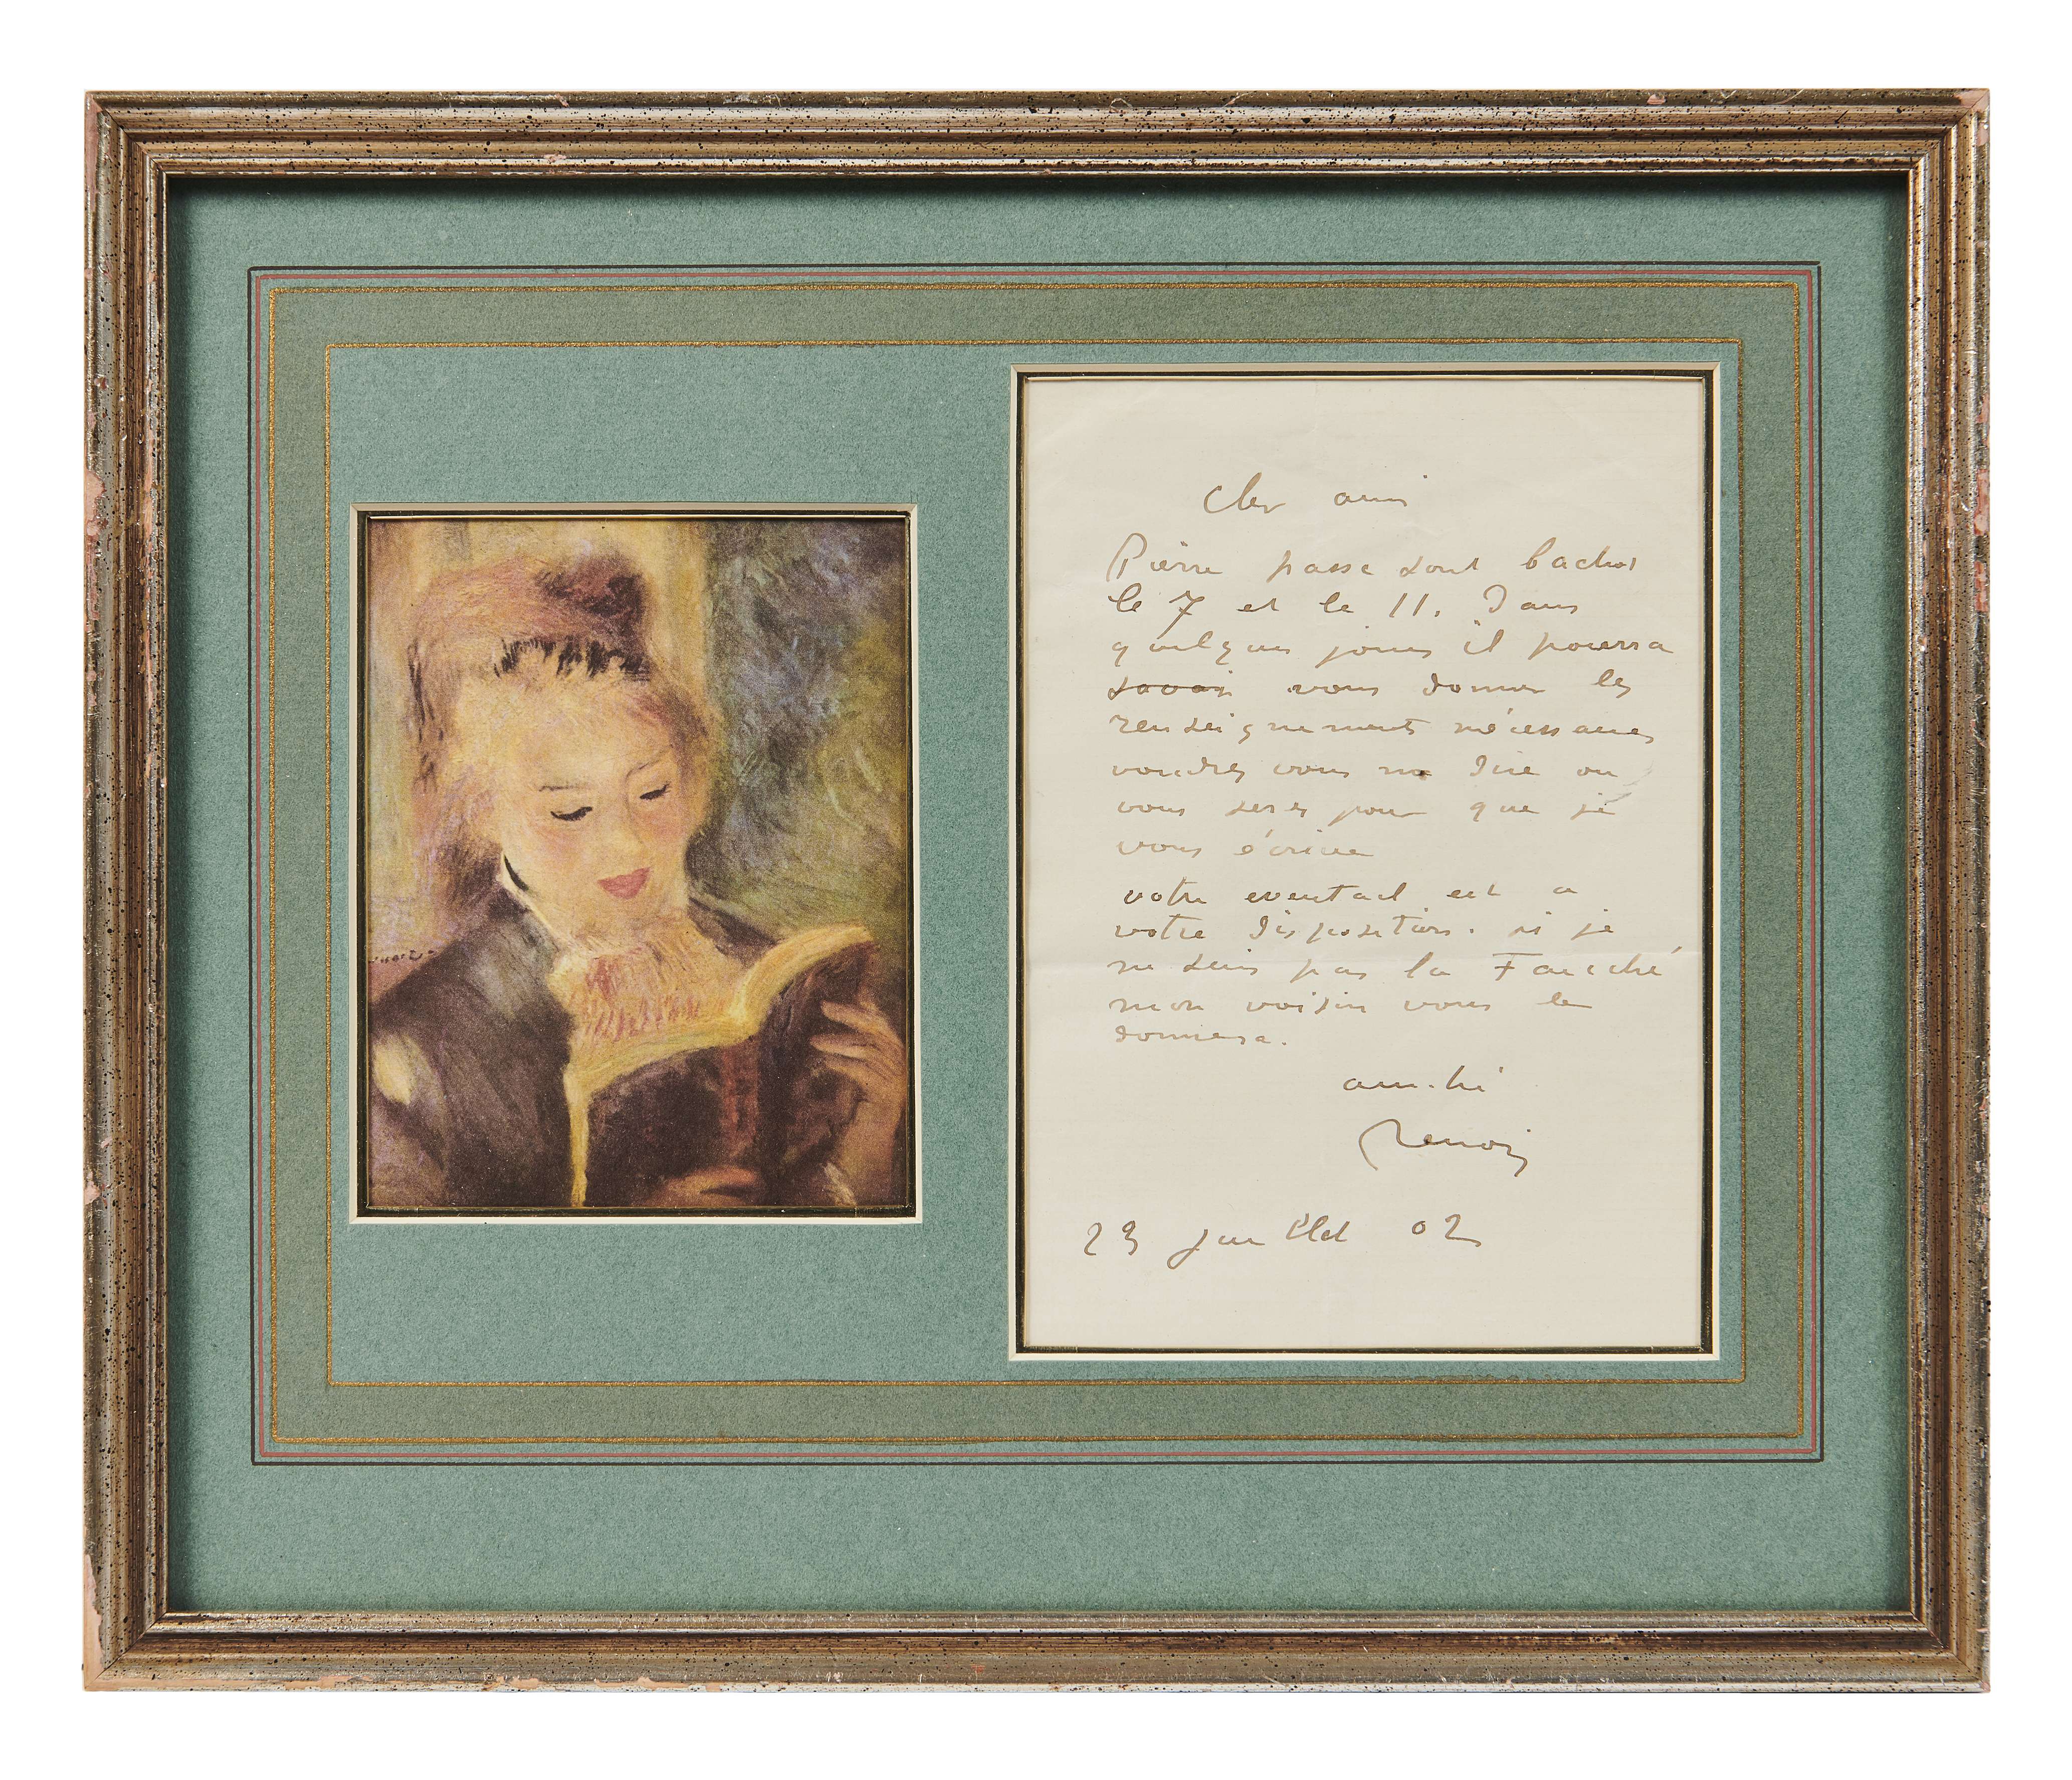 Cher ami
Pierre passe son bachot
le 7 et le 11. Dans
quelques jours il pourra
savoir vous donner les
renseignements nécessaires
voudrez vous me dire ou
vous serez pour que je
vous écrive
votre eventail est a
votre disposition. si je
ne suis pas la
mon voisin vous le
donnera.
amitié
Renoir
23 juillet 02